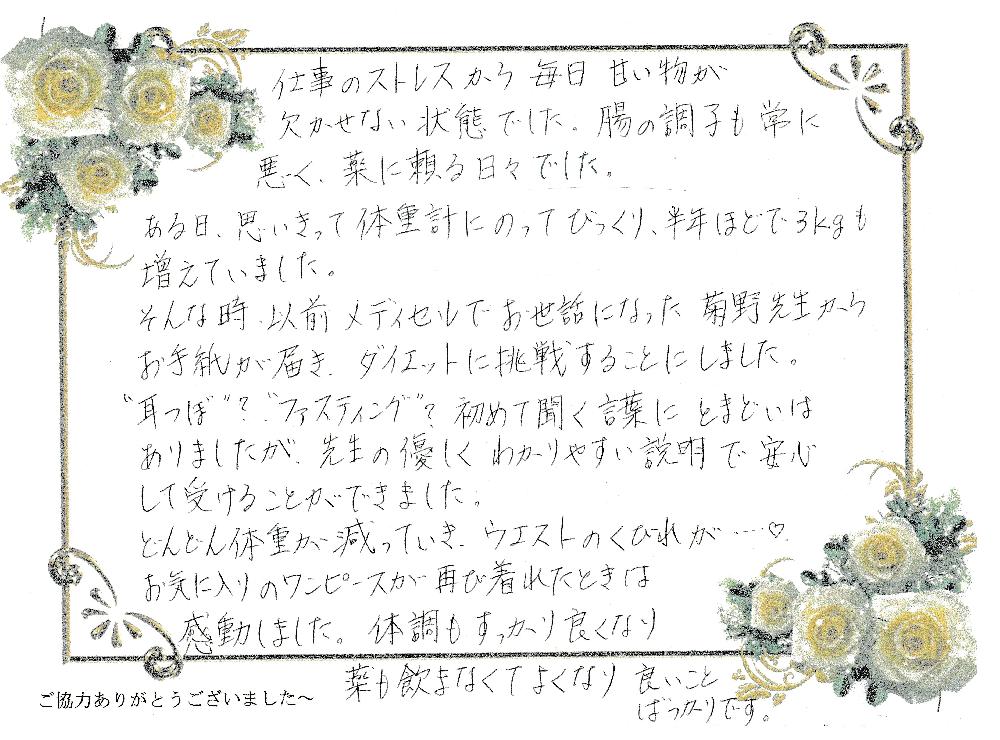 仕事のストレスから 毎日 甘い物が
欠かせない 状態でした。腸の調子も 常に
悪く、薬に頼る日々でした。
ある日、思いきって 体重計にのってびっくり、半年ほどで3kgも
増えていました。
そんな時、以前 メディセルで お世話になった 菊野先生から
お手紙が届き、ダイエットに挑戦することにしました。
“耳つぼ”？“ファスティング”？ 初めて聞く言葉に とまどいは
ありましたが、先生の優しく わかりやすい説明で 安心
して受けることができました。
どんどん体重が減っていき、ウエストのくびれが……♡
お気に入りのワンピースが再び着れたときは
感動しました。体調もすっかり良くなり
薬も飲まなくてよくなり 良いこと
ばっかりです。
ご協力ありがとうございました～